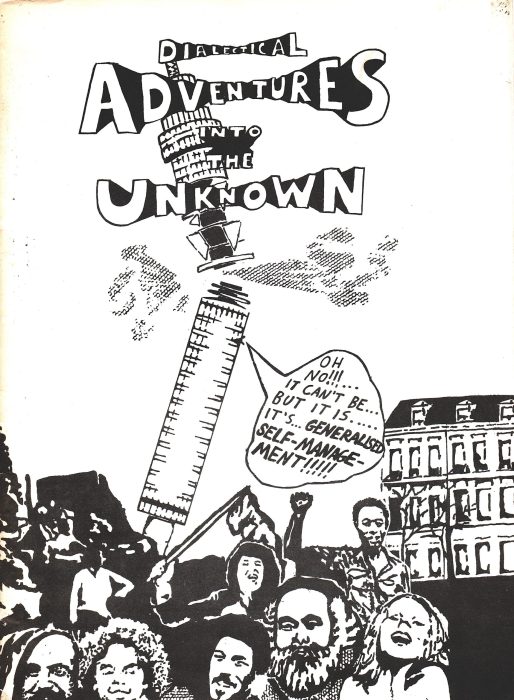 DIALECTICAL
ADVENTURES
INTO
THE
UNKNOWN
OH
NO!!!...
IT CAN'T BE...
BUT IT IS.....
IT'S... GENERALISED
SELF-MANAGE-
MENT!!!!!